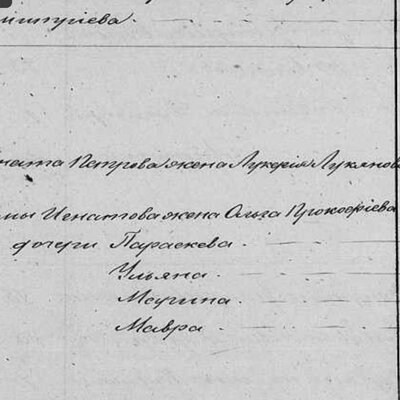 ната Петрова жена Лукерія Лукянова
мы Игнатова жена Ольга Прокофіева
дочери Параскева
Ульяна
Марина
Мавра